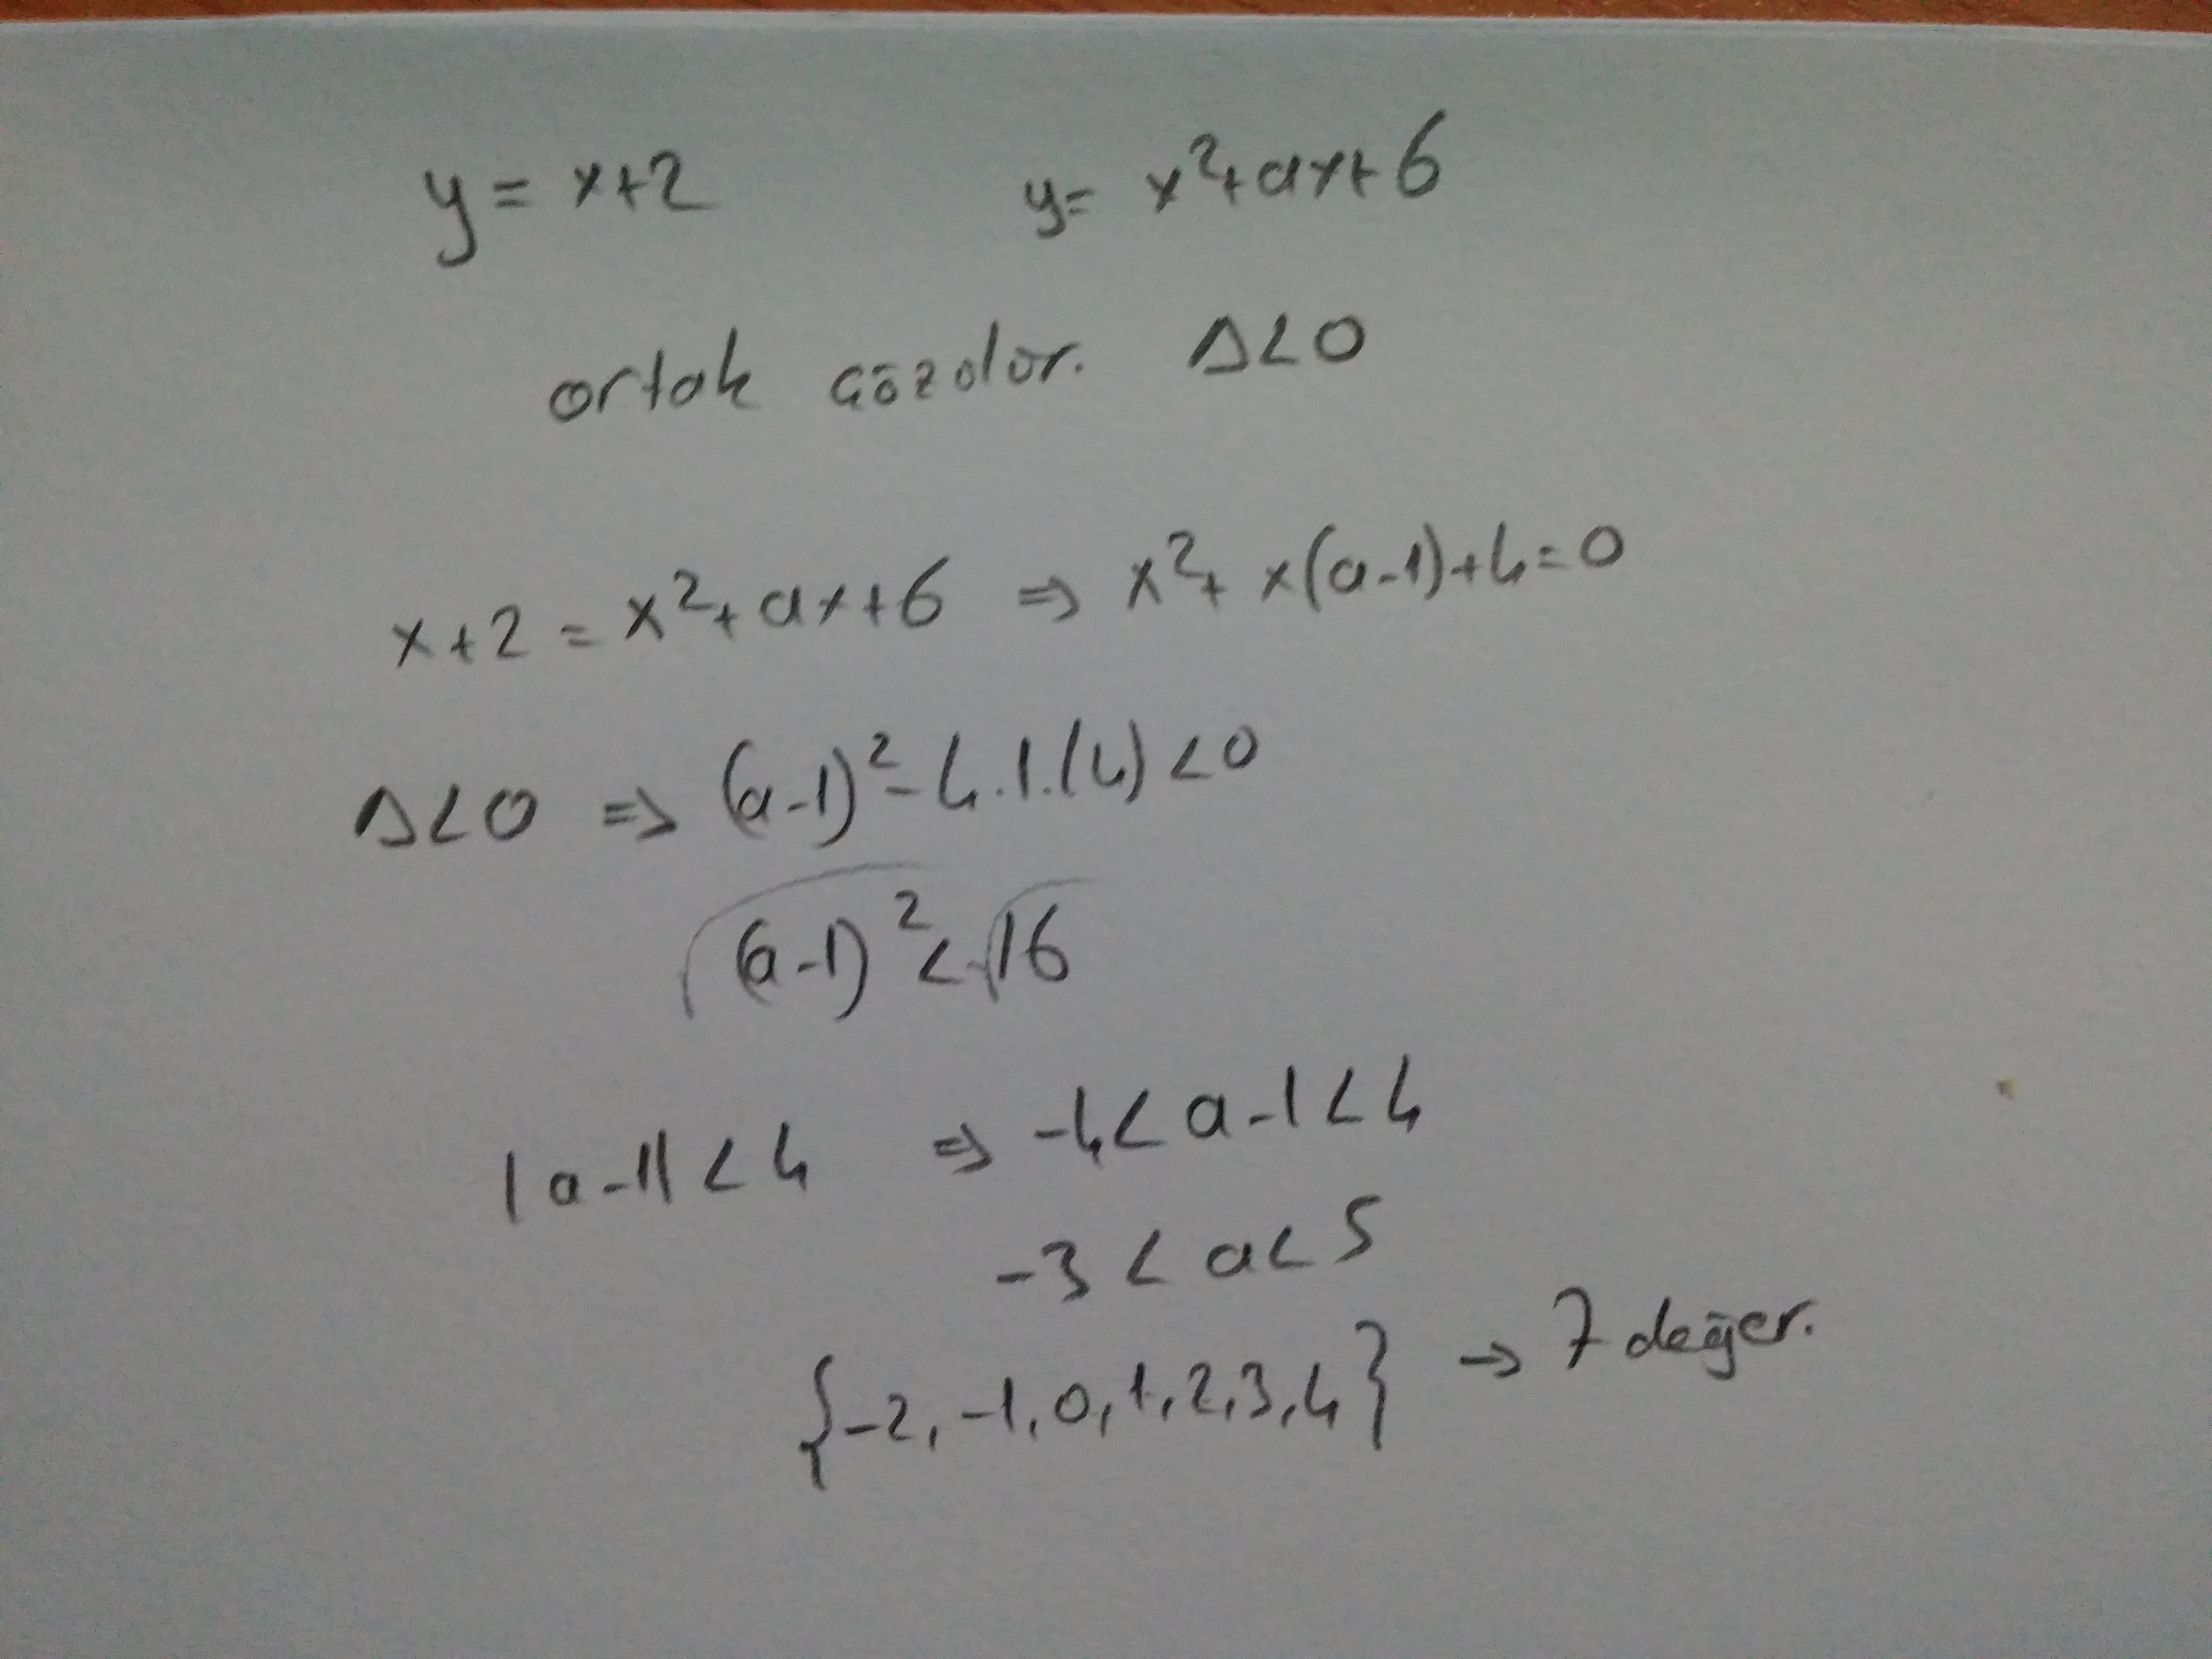 y = x+2 y = x²+ax+6
ortak çözülür. Δ<0
x+2 = x²+ax+6 ⇒ x²+x(a-1)+4=0
Δ<0 ⇒ (a-1)²-4.1.(4)<0
√(a-1)² < √16
|a-1|<4 ⇒ -4<a-1<4
-3<a<5
{-2,-1,0,1,2,3,4} → 7 değer.